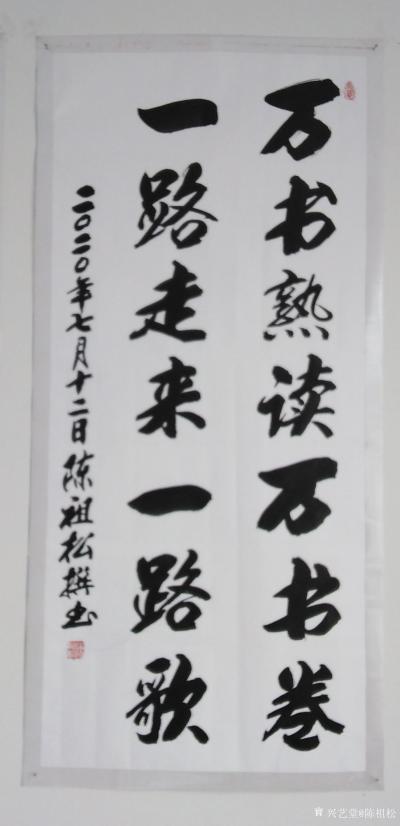 万书熟读万书卷
一路走来一路歌
二〇二〇年七月十二日陈祖松撰书
兴艺堂@陈祖松